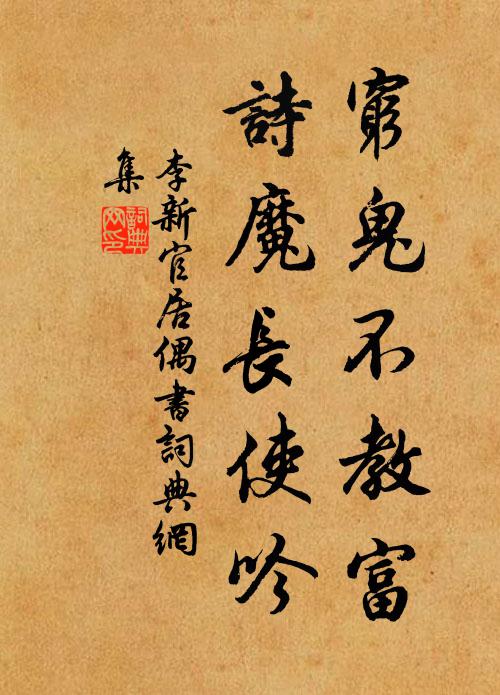 窮鬼不教富
詩魔長使吟
李新官居偶書詞典網
集
詞典
網印